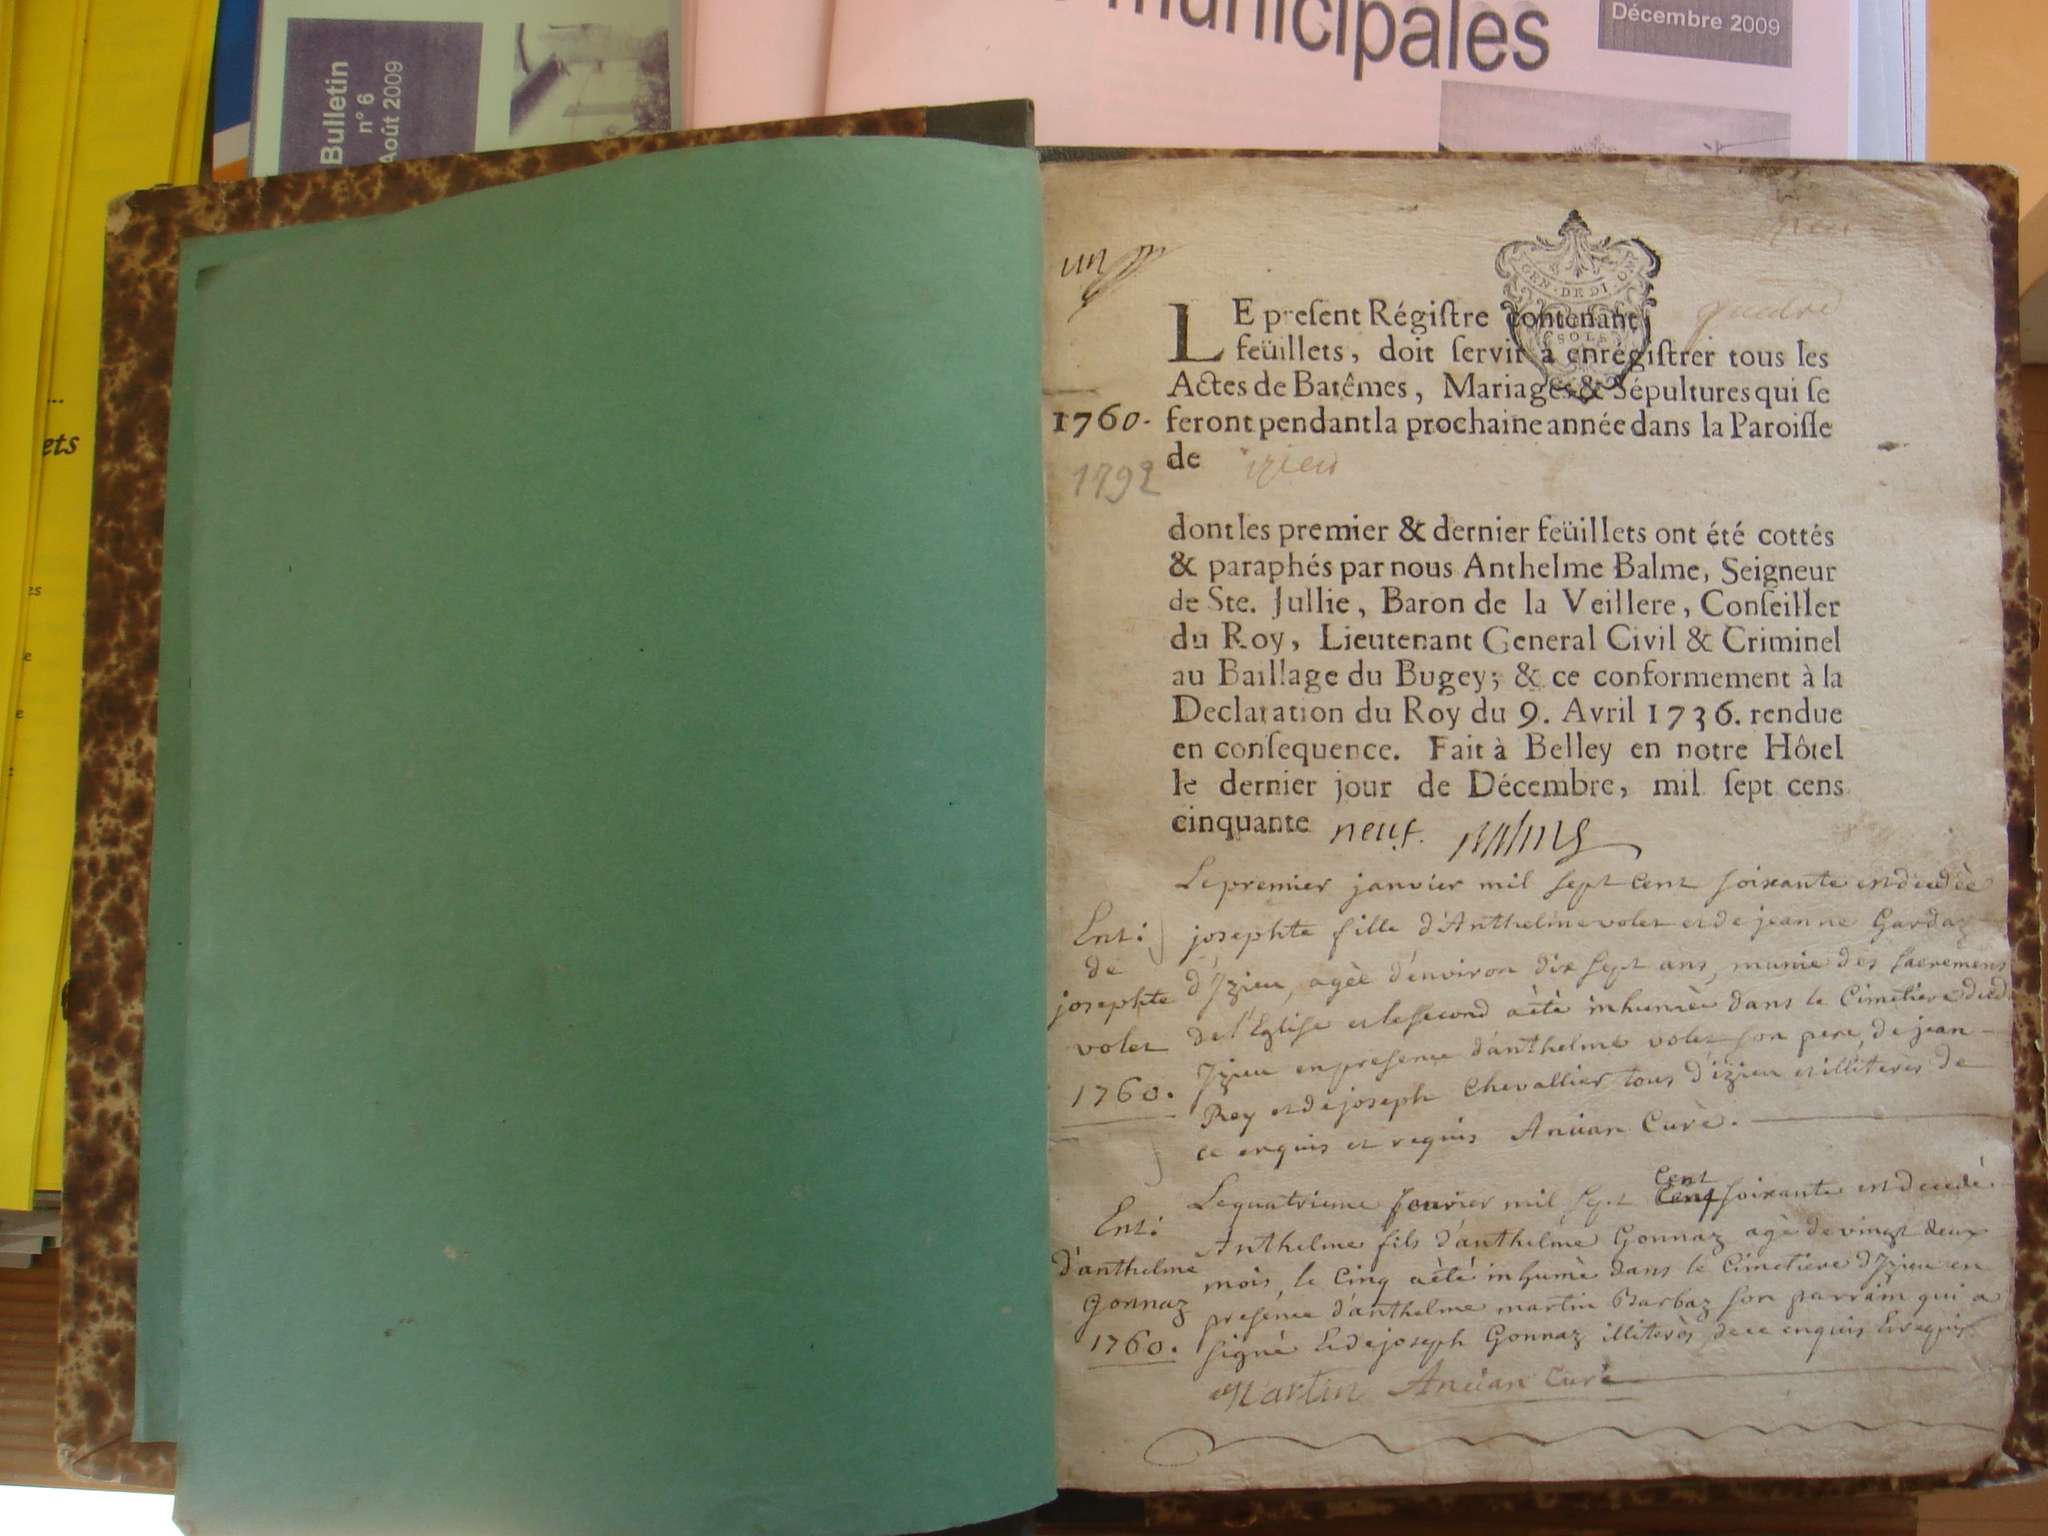 Bulletin
n° 6
Août 2009
municipales
Décembre 2009
ets
un
GEN · DE DI
SOLS
LE preſent Régiſtre contenant quatre
feüillets, doit ſervir à enrégiſtrer tous les
Actes de Batêmes, Mariages & Sépultures qui ſe
feront pendant la prochaine année dans la Paroiſſe
de izieu
1760.
1792
dont les premier & dernier feüillets ont été cottés
& paraphés par nous Anthelme Balme, Seigneur
de Ste. Jullie, Baron de la Veillere, Conſeiller
du Roy, Lieutenant General Civil & Criminel
au Baillage du Bugey; & ce conformement à la
Declaration du Roy du 9. Avril 1736. rendue
en conſequence. Fait à Belley en notre Hôtel
le dernier jour de Décembre, mil ſept cens
cinquante neuf. Balme
Ent:
de
josephte
volet
1760.
Le premier janvier mil sept cent soixante est decedèe
josephte fille d'Anthelme volet et de jeanne Gardaz
d'Izieu, agèe d'environ dix sept ans, munie des sacremens
de l'Eglise et le second a ètè inhumèe dans le Cimetiere dud
Izieu en presence d'anthelme volet son pere, de jean
Rey et de joseph Chevallier tous d'izieu et illiterès de
ce enquis et requis Ancian Curè.
Ent:
d'anthelme
gonnaz
1760.
Le quatrieme janvier mil sept Cent soixante est decedé
Anthelme fils d'anthelme Gonnaz agè de vingt deux
mois, le Cinq a èté inhumè dans le Cimetiere d'Izieu en
presence d'anthelme martin Barbaz son parrain qui a
signè Et de joseph Gonnaz illiterès de ce enquis Et requis
Martin Ancian Curè